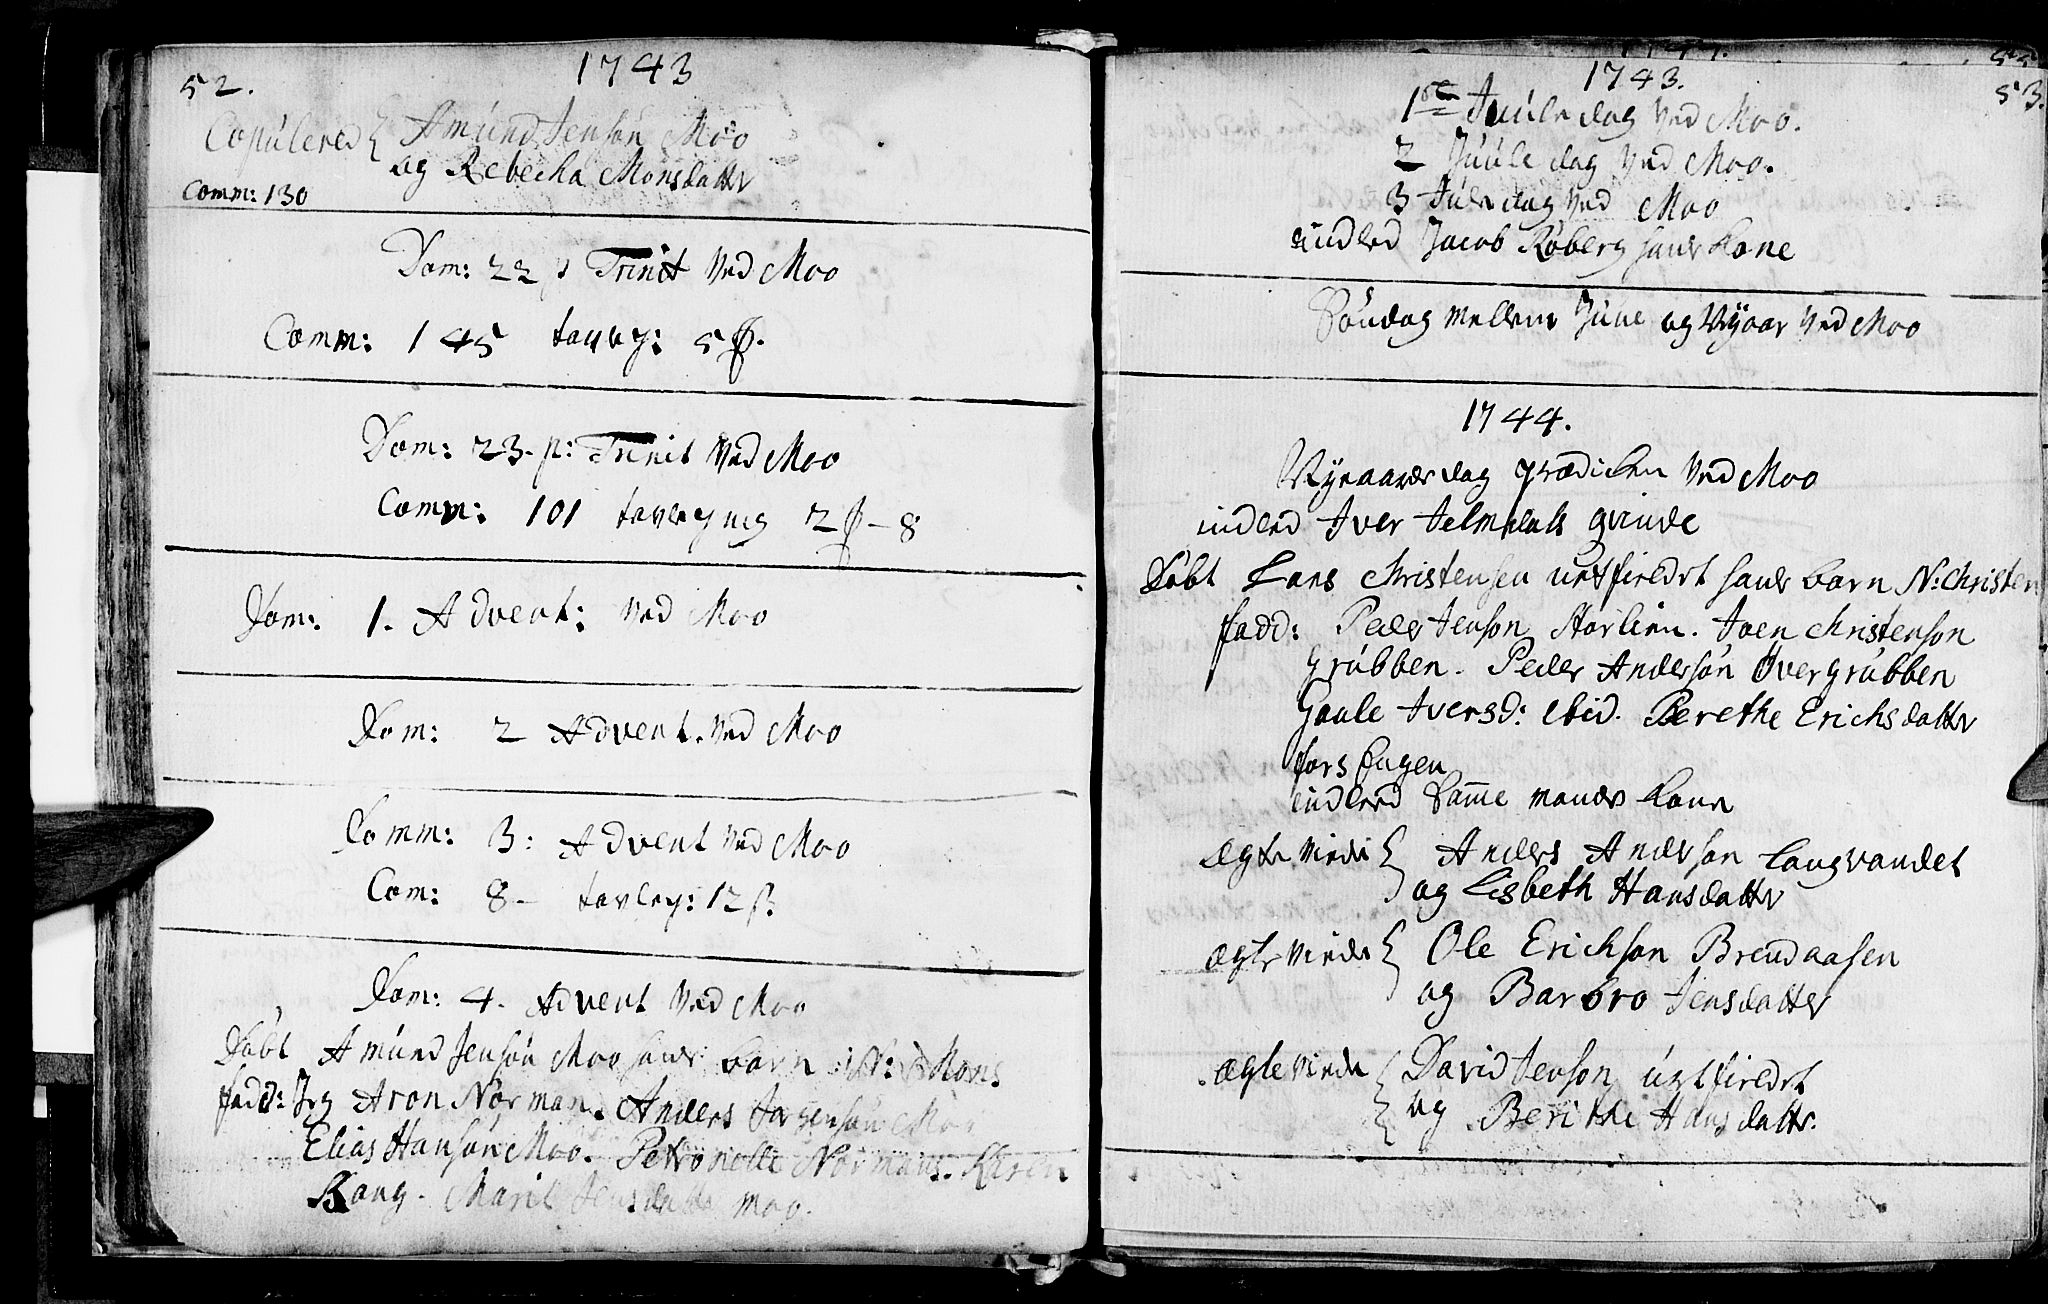 52.
1743
Copulered { Amund Jensøn Moo
og Rebecka Monsdatter
Comm: 130
Dom: 22 p Trinit ved Moo
Comm: 145 tavleg: 5
Dom: 23. p: Trinit ved Moo
Comm: 101 tavlegng 2 - 8
Dom: 1. Advent: ved Moo
Dom: 2 Advent. ved Moo
Domm: 3: Advent ved Moo
Com: 8 - tavleg: 12 ß.
Dom: 4. Advent ved Moo
Døbt Amund Jensøn Moo hans barn N: Mons
fadd: Jeg Aron Norman. Anders Jørgensøn Moo
Elias Hansøn Moo. Petronelle Normans. Karen
Rang. Marit Jensdatter Moo.
1743.
53.
1ste Juule dag ved Moo.
2 Juule dag ved Moo.
3 Jule dag ved Moo
indled Jacob Røberg hans Kone
Søndag mellem Juul og Nyaar ved Moo
1744.
Nyeaarsdag prædiken ved Moo
indled Iver Selmdals qvinde
Døbt Lars Christensen urtfiredet hans barn N: Christen
fadd: Peder Jensøn Storlien. Joen Christensøn
Grubben. Peder Andersøn Øvergrubben
Goule Iversd: ibid. Berethe Erichsdatter
fors Engen
indleed Samme mands Kone
ægte viede { Anders Andersøn Langvandet
og Lisbeth Hansdatter
ægte viede { Ole Erichsøn Brendaasen
og Barbro Jensdatter
ægte viede { David Jensøn urtfiredet
og Berithe Hansdatter.